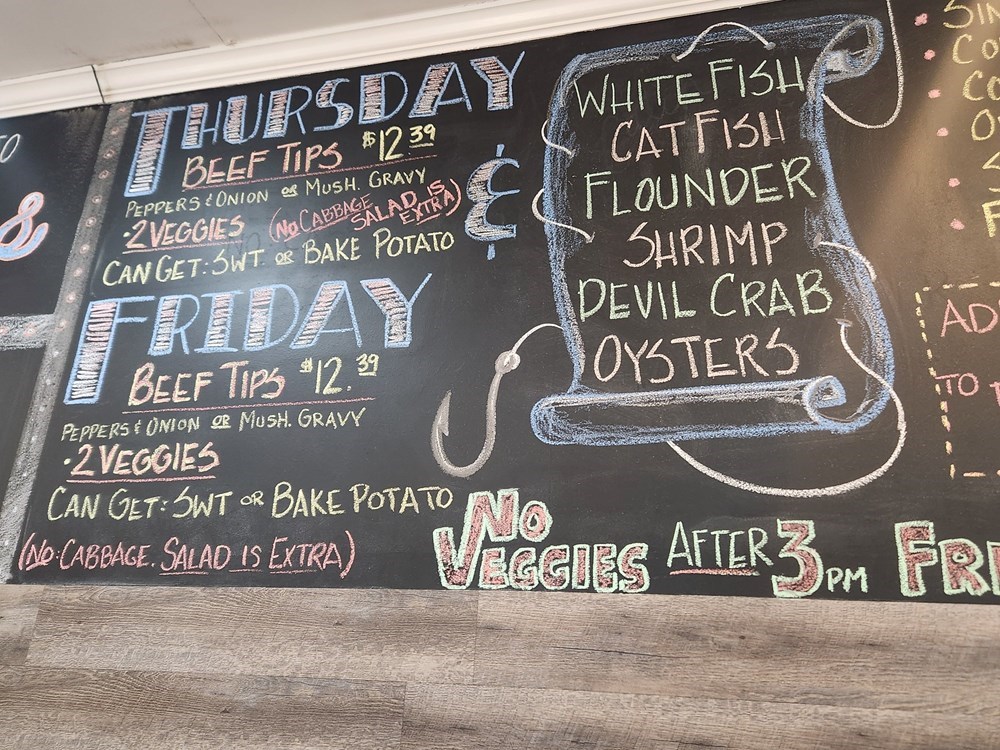 &
THURSDAY
BEEF TIPS $12.39
PEPPERS & ONION OR MUSH. GRAVY
·2 VEGGIES (NO CABBAGE SALAD IS EXTRA)
CAN GET: SWT OR BAKE POTATO
FRIDAY
BEEF TIPS $12.39
PEPPERS & ONION OR MUSH. GRAVY
·2 VEGGIES
CAN GET: SWT OR BAKE POTATO
(NO: CABBAGE. SALAD IS EXTRA)
&
WHITE FISH
CATFISH
FLOUNDER
SHRIMP
DEVIL CRAB
OYSTERS
NO VEGGIES AFTER 3PM
TO